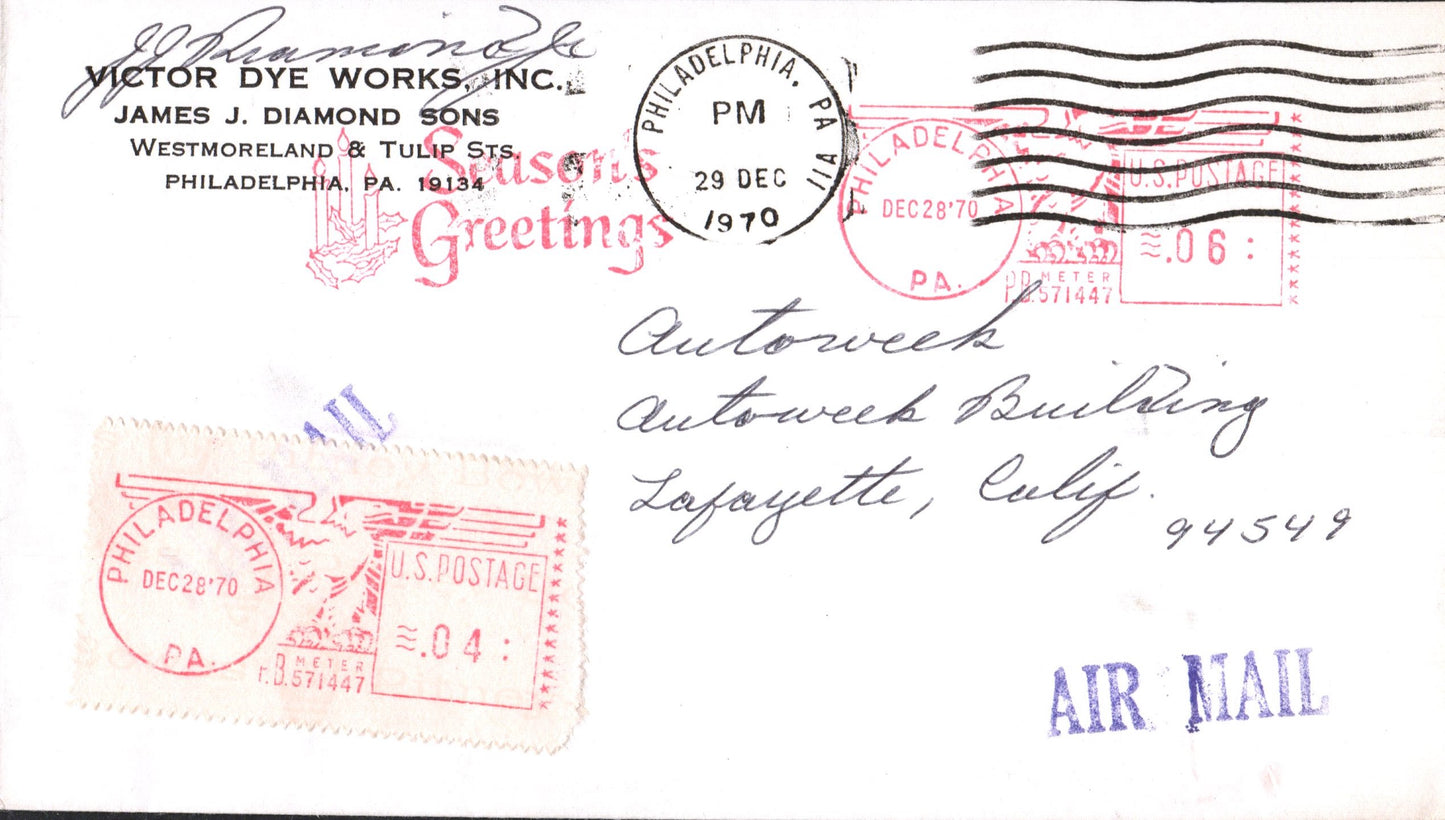 JJ Diamond Jr
VICTOR DYE WORKS, INC.
JAMES J. DIAMOND SONS
WESTMORELAND & TULIP STS.
PHILADELPHIA, PA. 19134
Season's
Greetings
PHILADELPHIA, PA
PM
29 DEC
1970
PHILADELPHIA
DEC28'70
PA.
P.B. METER
571447
U.S.POSTAGE
≈.06:
Autoweek
Autoweek Building
Lafayette, Calif.
94549
AIL
PHILADELPHIA
DEC28'70
PA.
P.B. METER
571447
U.S.POSTAGE
≈.04:
AIR MAIL